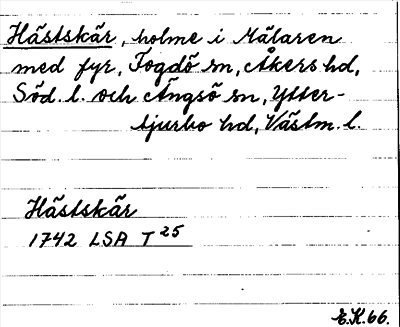 Hästskär, holme i Mälaren
med fyr, Fogdö sn, Åkers hd,
Söd. l. och Ängsö sn, Ytter-
tjurbo hd, Västm. l.
Hästskär
1742 LSA T 25
E.K. 66.